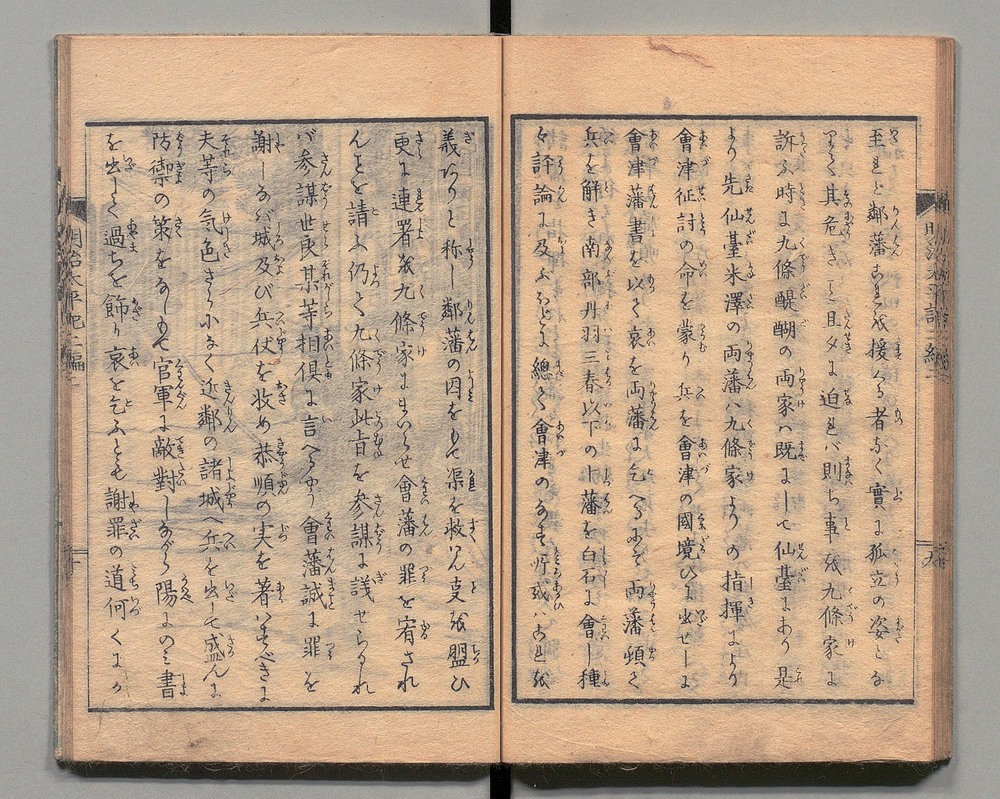 至れど鄰藩これを援くる者なく實に孤立の姿とな
りて其危きこと旦夕に迫れバ則ち事を九條家に
訴ふ時に九條醍醐の両家ハ既にして仙臺にあり是
より先仙臺米澤の両藩ハ九條家よりの指揮により
會津征討の命を蒙り兵を會津の國境ひに出せしに
會津藩書を以て哀を両藩に乞へるにぞ両藩頓て
兵を解き南部丹羽三春以下の小藩を白石に會し種
々評論に及ぶほどに總て會津のなす所或ハこれを
義なりと称し鄰藩の因をもて渠を救はん事を盟ひ
更に連署を九條家にまいらせ會藩の罪を宥され
んことを請ふ仍て九條家此旨を参謀に議せらるれ
バ参謀世良某等相倶に言へるやう會藩誠に罪を
謝しなバ城及び兵仗を收め恭順の実を著はすべきに
夫等の気色さらになく近鄰の諸城へ兵を出して盛んに
防禦の策をなしもて官軍に敵對しながら陽にのミ書
を出して過ちを飾り哀を乞ふとも謝罪の道何くにか
明治太平記二編一
明治太平記二編一